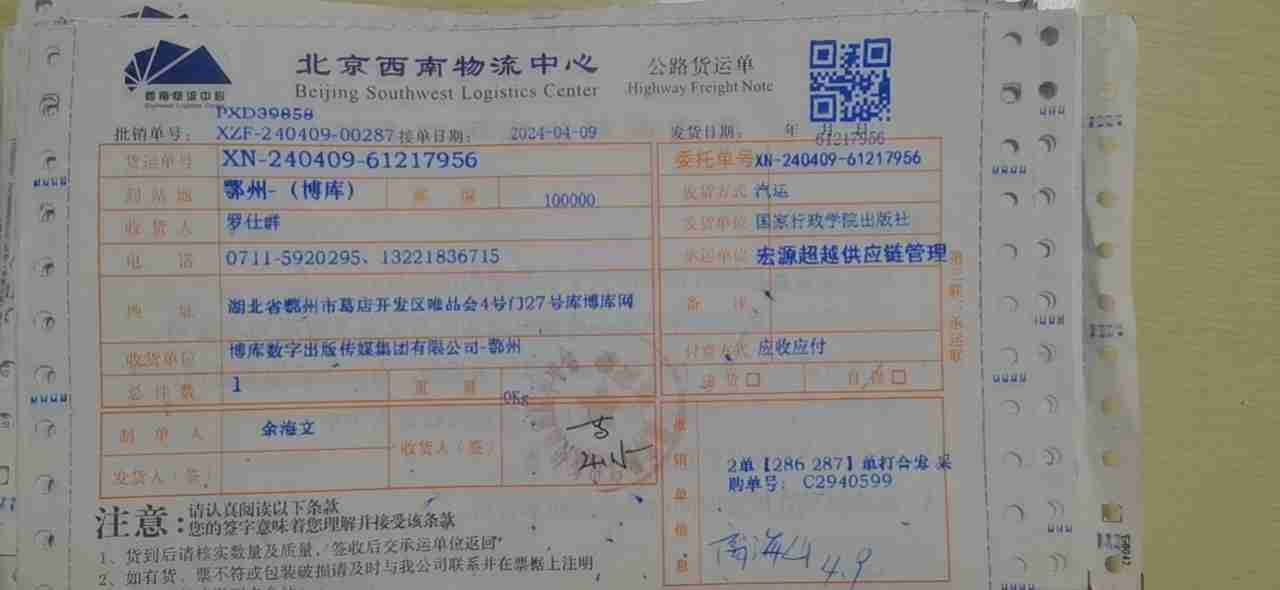 北京西南物流中心
公路货运单
Beijing Southwest Logistics Center
Highway Freight Note
西南物流中心
PXD39858
批销单号: XZF-240409-00287 接单日期: 2024-04-09 发货日期: 年 月 日
61217956
货运单号 XN-240409-61217956 委托单号 XN-240409-61217956
到站地 鄂州-(博库) 邮 编 100000 发货方式 汽运
收货人 罗仕群 发货单位 国家行政学院出版社
电 话 0711-5920295、13221836715 承运单位 宏源超越供应链管理
地 址 湖北省鄂州市葛店开发区唯品会4号门27号库博库网 备 注
收货单位 博库数字出版传媒集团有限公司-鄂州 付费方式 应收应付
总件数 1 重 量 0Kg 送货□ 自提□
第三联:承运联
制 单 人 余海文 收货人(签)
发货人(签)
批销单信息
2单【286 287】单打合发 采
购单号: C2940599
4.9
注意: 请认真阅读以下条款
您的签字意味着您理解并接受该条款
1、货到后请核实数量及质量,签收后交承运单位返回
2、如有货、票不符或包装破损请及时与我公司联系并在票据上注明